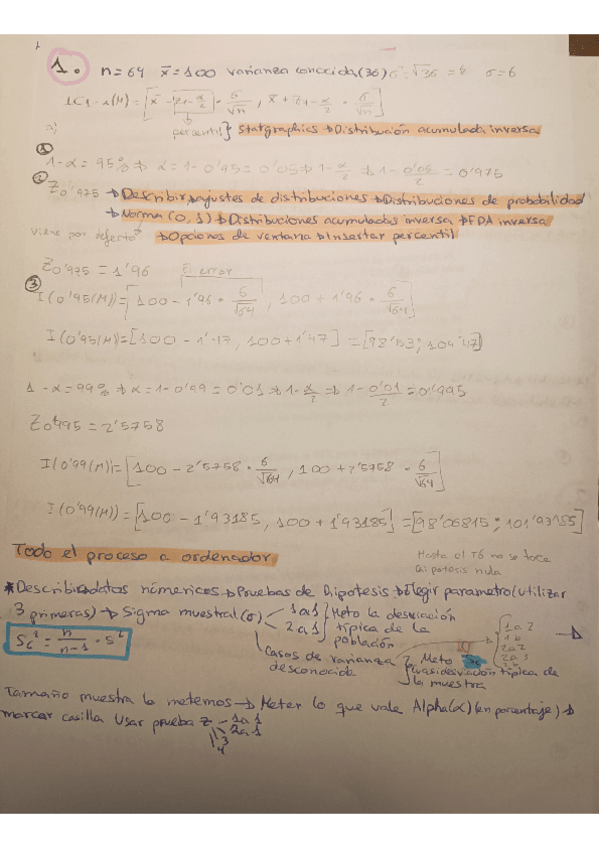 1. n=64 x̄=100 varianza conocida(36) σ=√36=6 σ=6
IC1-α(M)=[x̄ - z1-α/2 · σ/√n , x̄ + z1-α/2 · σ/√n]
a) percentil} Statgraphics → Distribución acumulada inversa
①
1-α = 95% → α = 1-0'95 = 0'05 → 1-α/2 → 1-0'05/2 = 0'975
②
Z0'975 → Describir → ajustes de distribuciones → Distribuciones de probabilidad
→ Norma (0, 1) → Distribuciones acumuladas inversa → FDA inversa
viene por defecto → Opciones de ventana → Insertar percentil
Z0'975 = 1'96 El error
③
I(0'95(M))=[100 - 1'96 · 6/√64 , 100 + 1'96 · 6/√64]
I(0'95(M))=[100 - 1'47, 100+1'47] = [98'53; 104'47]
1-α = 99% → α = 1-0'99 = 0'01 → 1-α/2 → 1-0'01/2 = 0'995
Z0'995 = 2'5758
I(0'99(M))=[100 - 2'5758 · 6/√64 , 100 + 2'5758 · 6/√64]
I(0'99(M))=[100 - 1'93185, 100 + 1'93185] = [98'06815; 101'93185]
Todo el proceso a ordenador
Hasta el T6 no se toca
hipótesis nula
*Describir → datos númericos → Pruebas de Hipotesis → Elegir parametro (utilizar
3 primeras) → Sigma muestral (σ) 1a1 2a1 } Meto la desviación
típica de la
población
Sc² = n/n-1 · s²
Casos de varianza
desconocida } Meto Sc
cuasidesviación típica de
la muestra
1a2
1b
2a2
2a3
2b
Tamaño muestra lo metemos → Meter lo que vale Alpha(α) (en porcentaje) →
marcar casilla Usar prueba z - 1a1
2a1
1.3
4